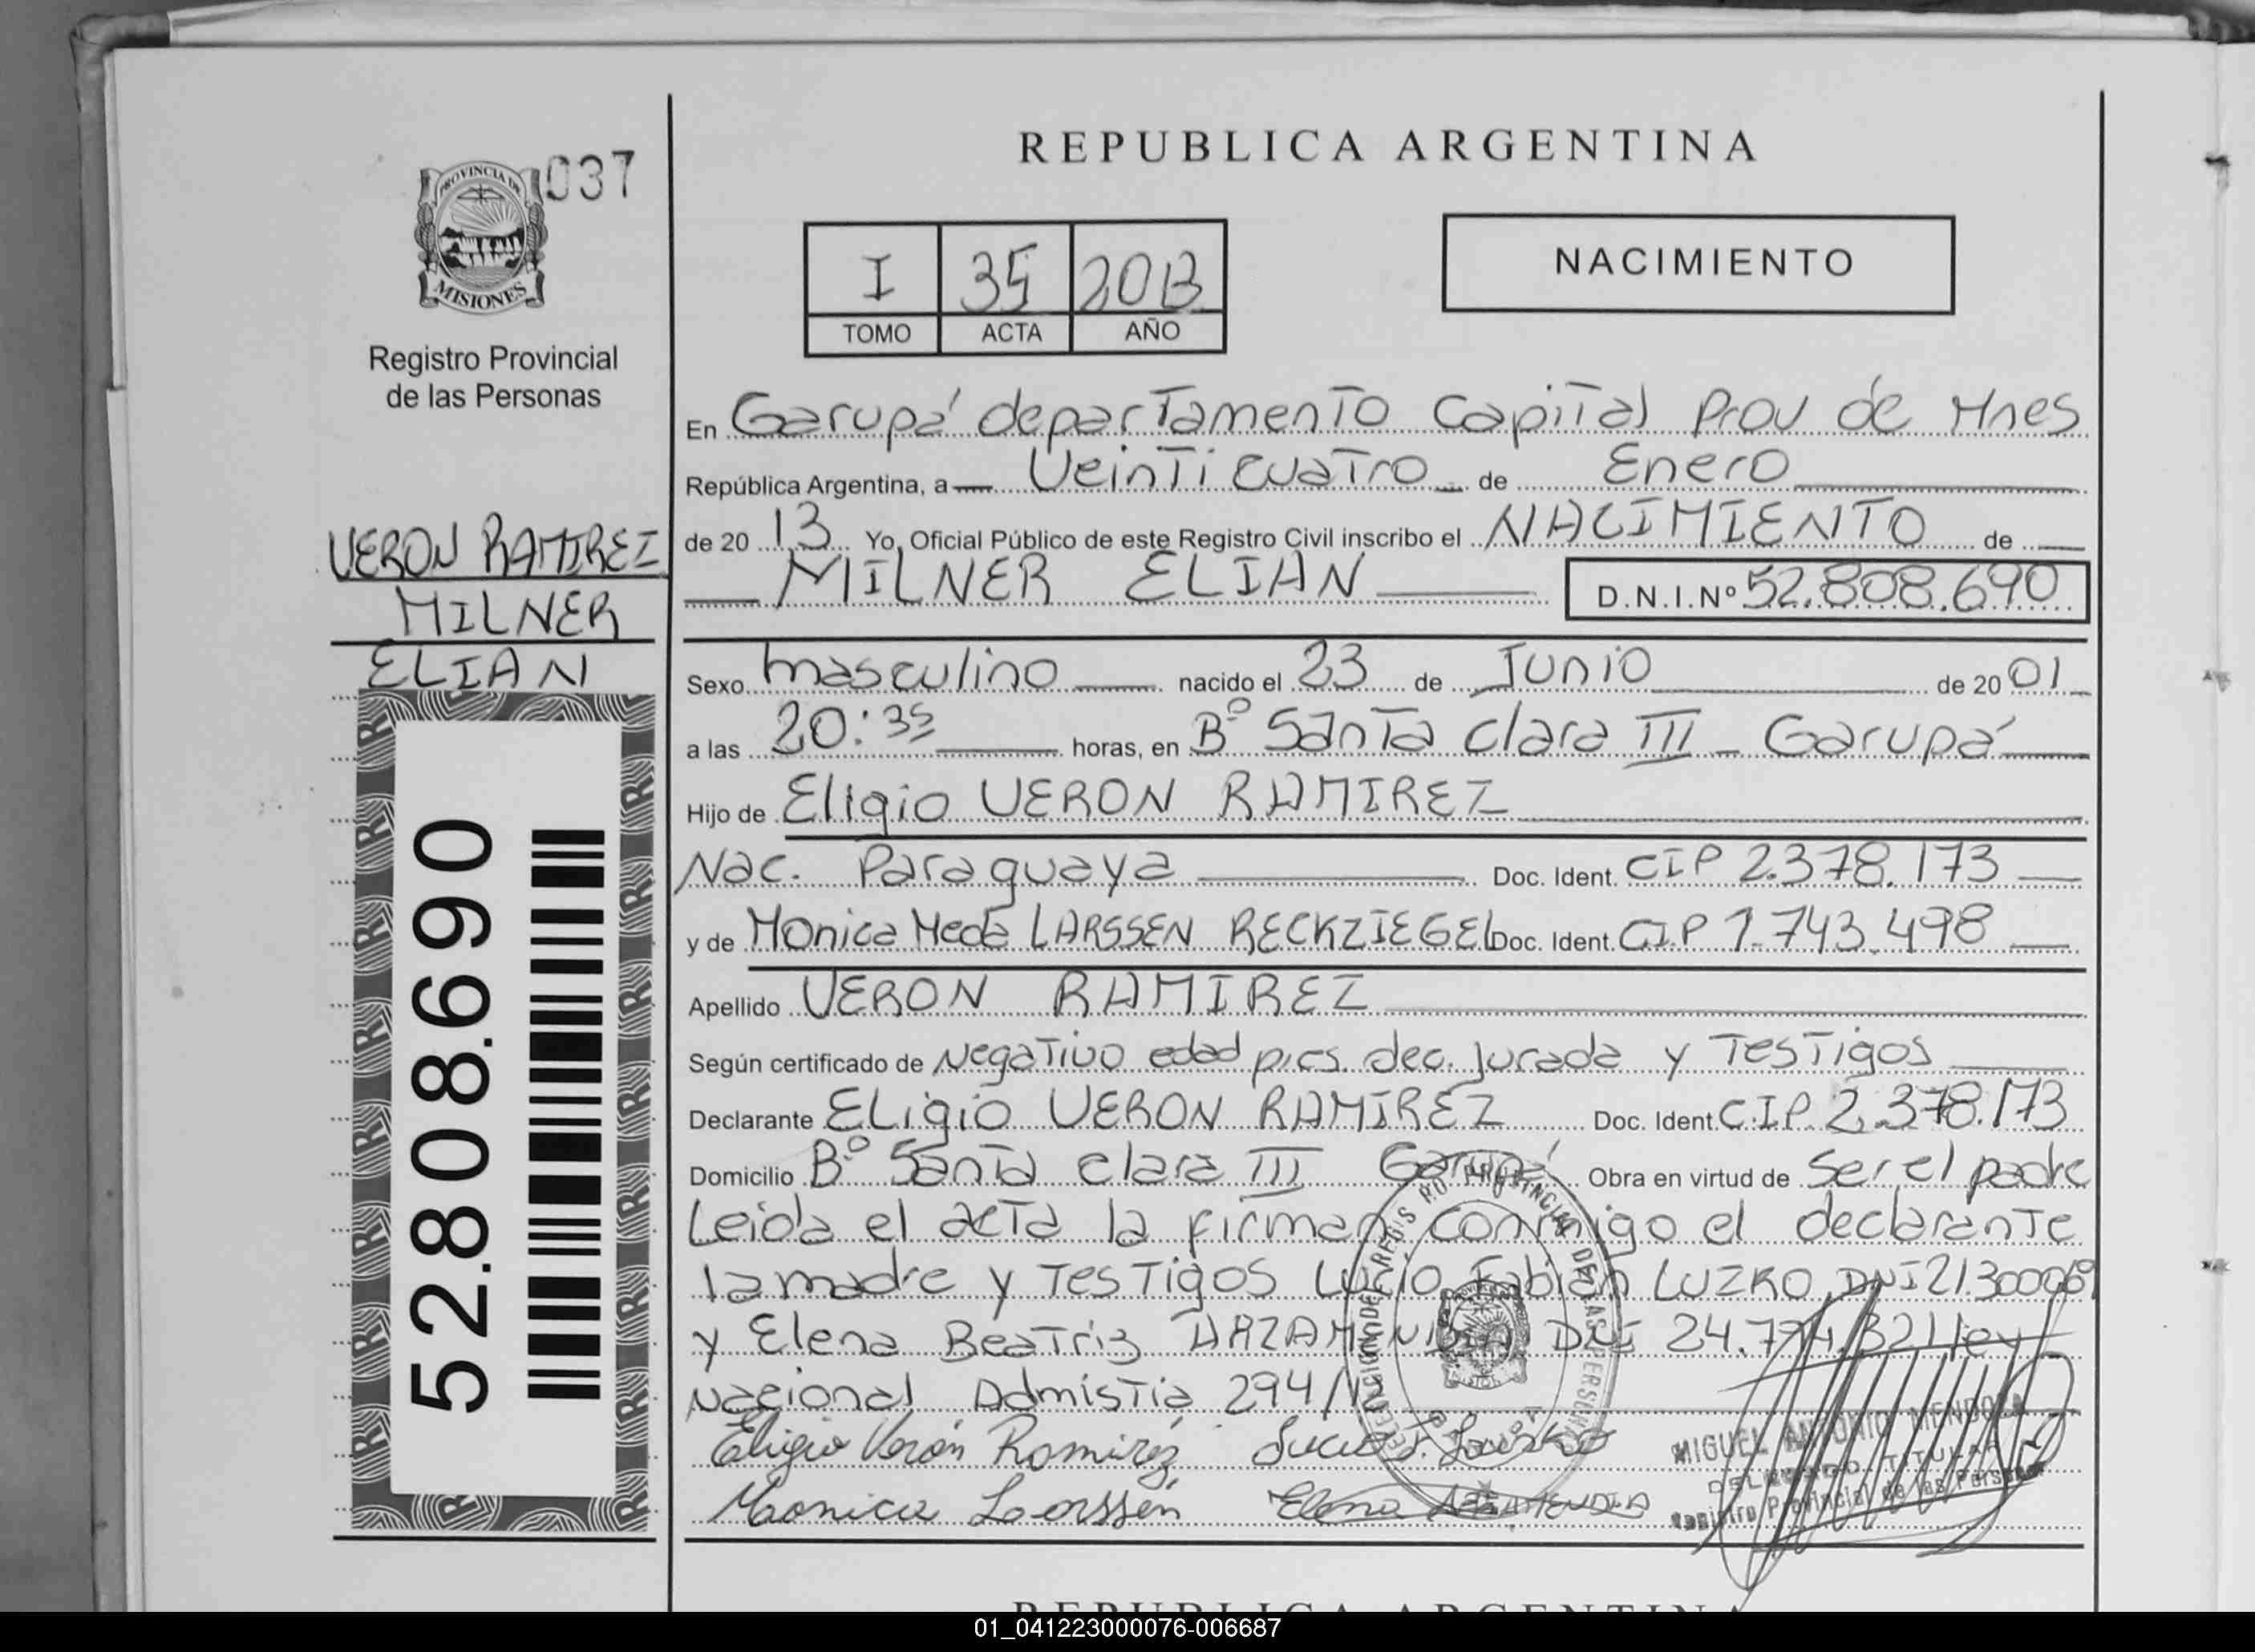 037
PROVINCIA DE
MISIONES
Registro Provincial
de las Personas
VERON RAMIREZ
MILNER
ELIAN
52.808.690
REPUBLICA ARGENTINA
NACIMIENTO
I 35 2013
TOMO ACTA AÑO
En Garupá departamento Capital Prov de Mnes
República Argentina, a Veinti cuatro de Enero
de 20 13 Yo, Oficial Público de este Registro Civil inscribo el NACIMIENTO de
MILNER ELIAN D.N.I.Nº 52.808.690
Sexo masculino nacido el 23 de Junio de 20 01
a las 20:35 horas, en Bº Santa Clara III - Garupá
Hijo de Eligio VERON RAMIREZ
Nac. Paraguaya Doc. Ident. CIP 2.378.173
y de Monica LARSSEN RECKZIEGEL Doc. Ident. CIP 1.743.498
Apellido VERON RAMIREZ
Según certificado de Negativo edad pics. dec. Jurada y Testigos
Declarante ELigio VERON RAMIREZ Doc. Ident. C.I.P. 2.378.173
Domicilio Bº Santa clara III Garupá Obra en virtud de Ser el padre
Leida el acta la firman conmigo el declarante
la madre y Testigos Lucio Fabian LUZKO DNI
y Elena Beatriz DNI ley
Nacional Admistia 294/12
Eligio Verón Ramirez Lucio F. Luzko
Monica Larssen Elena
MIGUEL ANTONIO MENDOZA
DELEGADO TITULAR
Registro Provincial de las Personas
REPUBLICA ARGENTINA
01_041223000076-006687